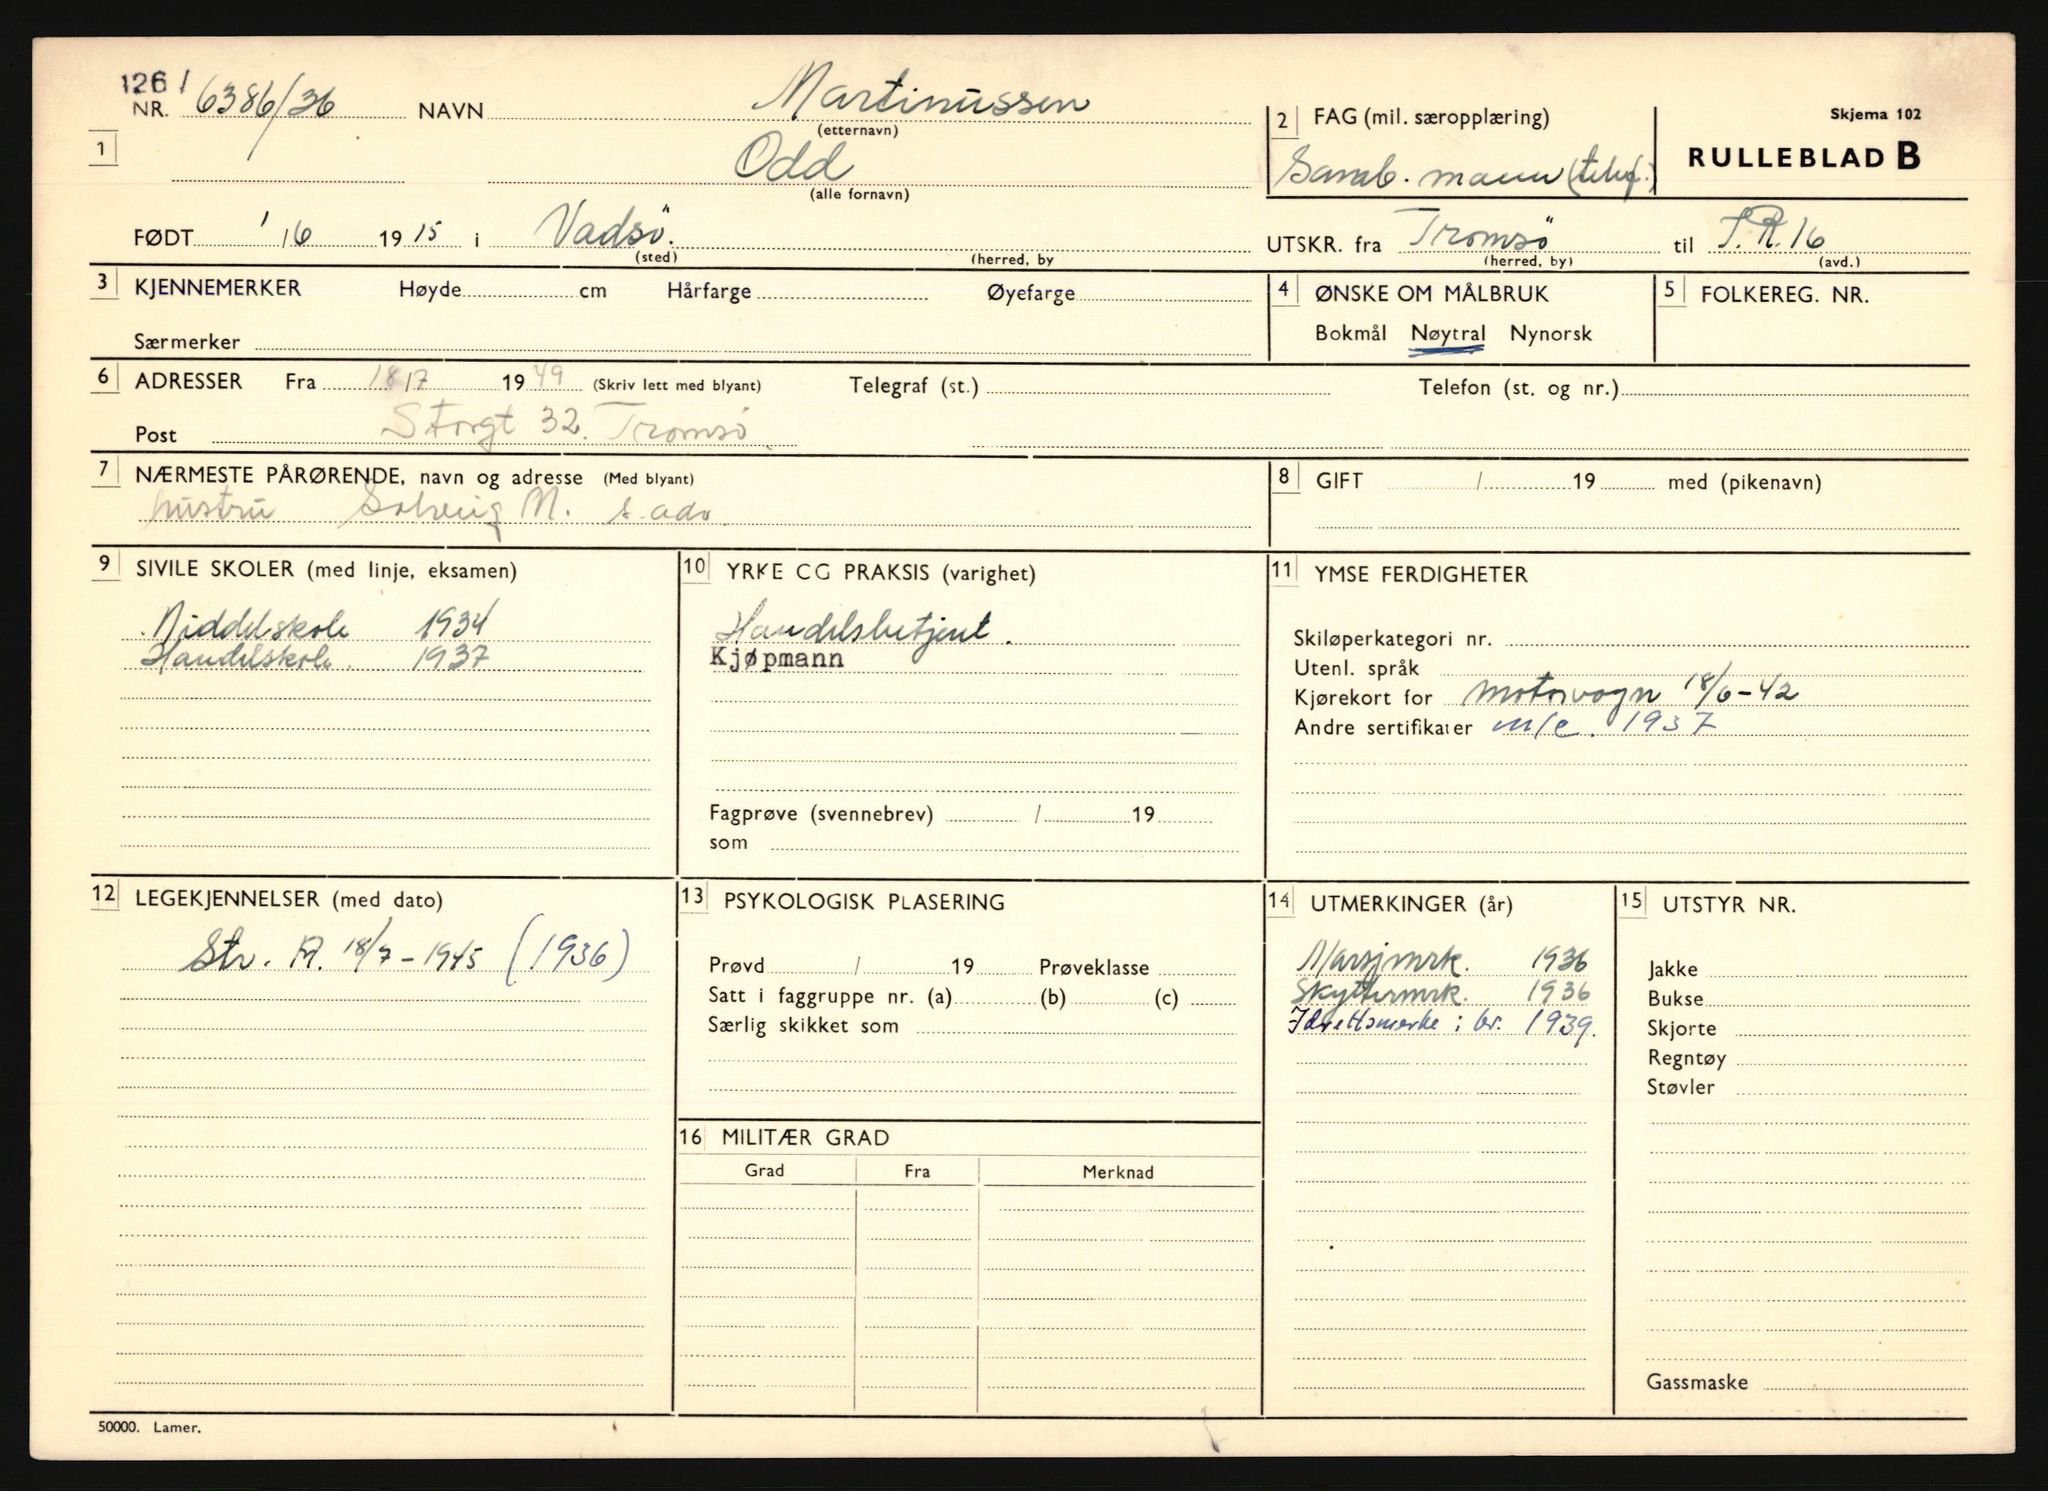 126 /
NR. 6386/36 NAVN Martinussen
(etternavn)
2 FAG (mil. særopplæring)
Skjema 102
1
Odd
(alle fornavn)
Samb. mann (telef.)
RULLEBLAD B
FØDT 1/6 1915 i Vadsö.
(sted) (herred, by
UTSKR. fra Tromsö til I.R. 16
(herred, by) (avd.)
3 KJENNEMERKER Høyde cm Hårfarge Øyefarge
Særmerker
4 ØNSKE OM MÅLBRUK
Bokmål Nøytral Nynorsk
5 FOLKEREG. NR.
6 ADRESSER Fra 18/7 1949 (Skriv lett med blyant) Telegraf (st.) Telefon (st. og nr.)
Post Storgt 32. Tromsö
7 NÆRMESTE PÅRØRENDE, navn og adresse (Med blyant)
hustru Solveig M. s. adr.
8 GIFT / 19 med (pikenavn)
9 SIVILE SKOLER (med linje, eksamen)
Middelskole 1934
Handelskole 1937
10 YRKE OG PRAKSIS (varighet)
Handelsbetjent.
Kjøpmann
Fagprøve (svennebrev) / 19
som
11 YMSE FERDIGHETER
Skiløperkategori nr.
Utenl. språk
Kjørekort for motorvogn 18/6-42
Andre sertifikater m/c. 1937
12 LEGEKJENNELSER (med dato)
Str. A. 18/7-1945 (1936)
13 PSYKOLOGISK PLASERING
Prøvd / 19 Prøveklasse
Satt i faggruppe nr. (a) (b) (c)
Særlig skikket som
14 UTMERKINGER (år)
Marsjmrk. 1936
Skyttermrk. 1936
Idrettsmerke i br. 1939.
15 UTSTYR NR.
Jakke
Bukse
Skjorte
Regntøy
Støvler
Gassmaske
16 MILITÆR GRAD
Grad Fra Merknad
50000. Lamer.